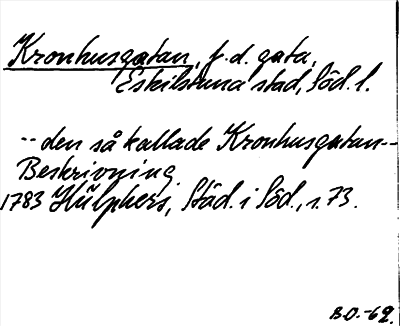 Kronhusgatan, f.d. gata,
Eskilstuna stad, Söd. l.
-- den så kallade Kronhusgatan --
Beskrivning
1783 Hülphers, Städ. i Söd., s. 73.
B.O. -62.